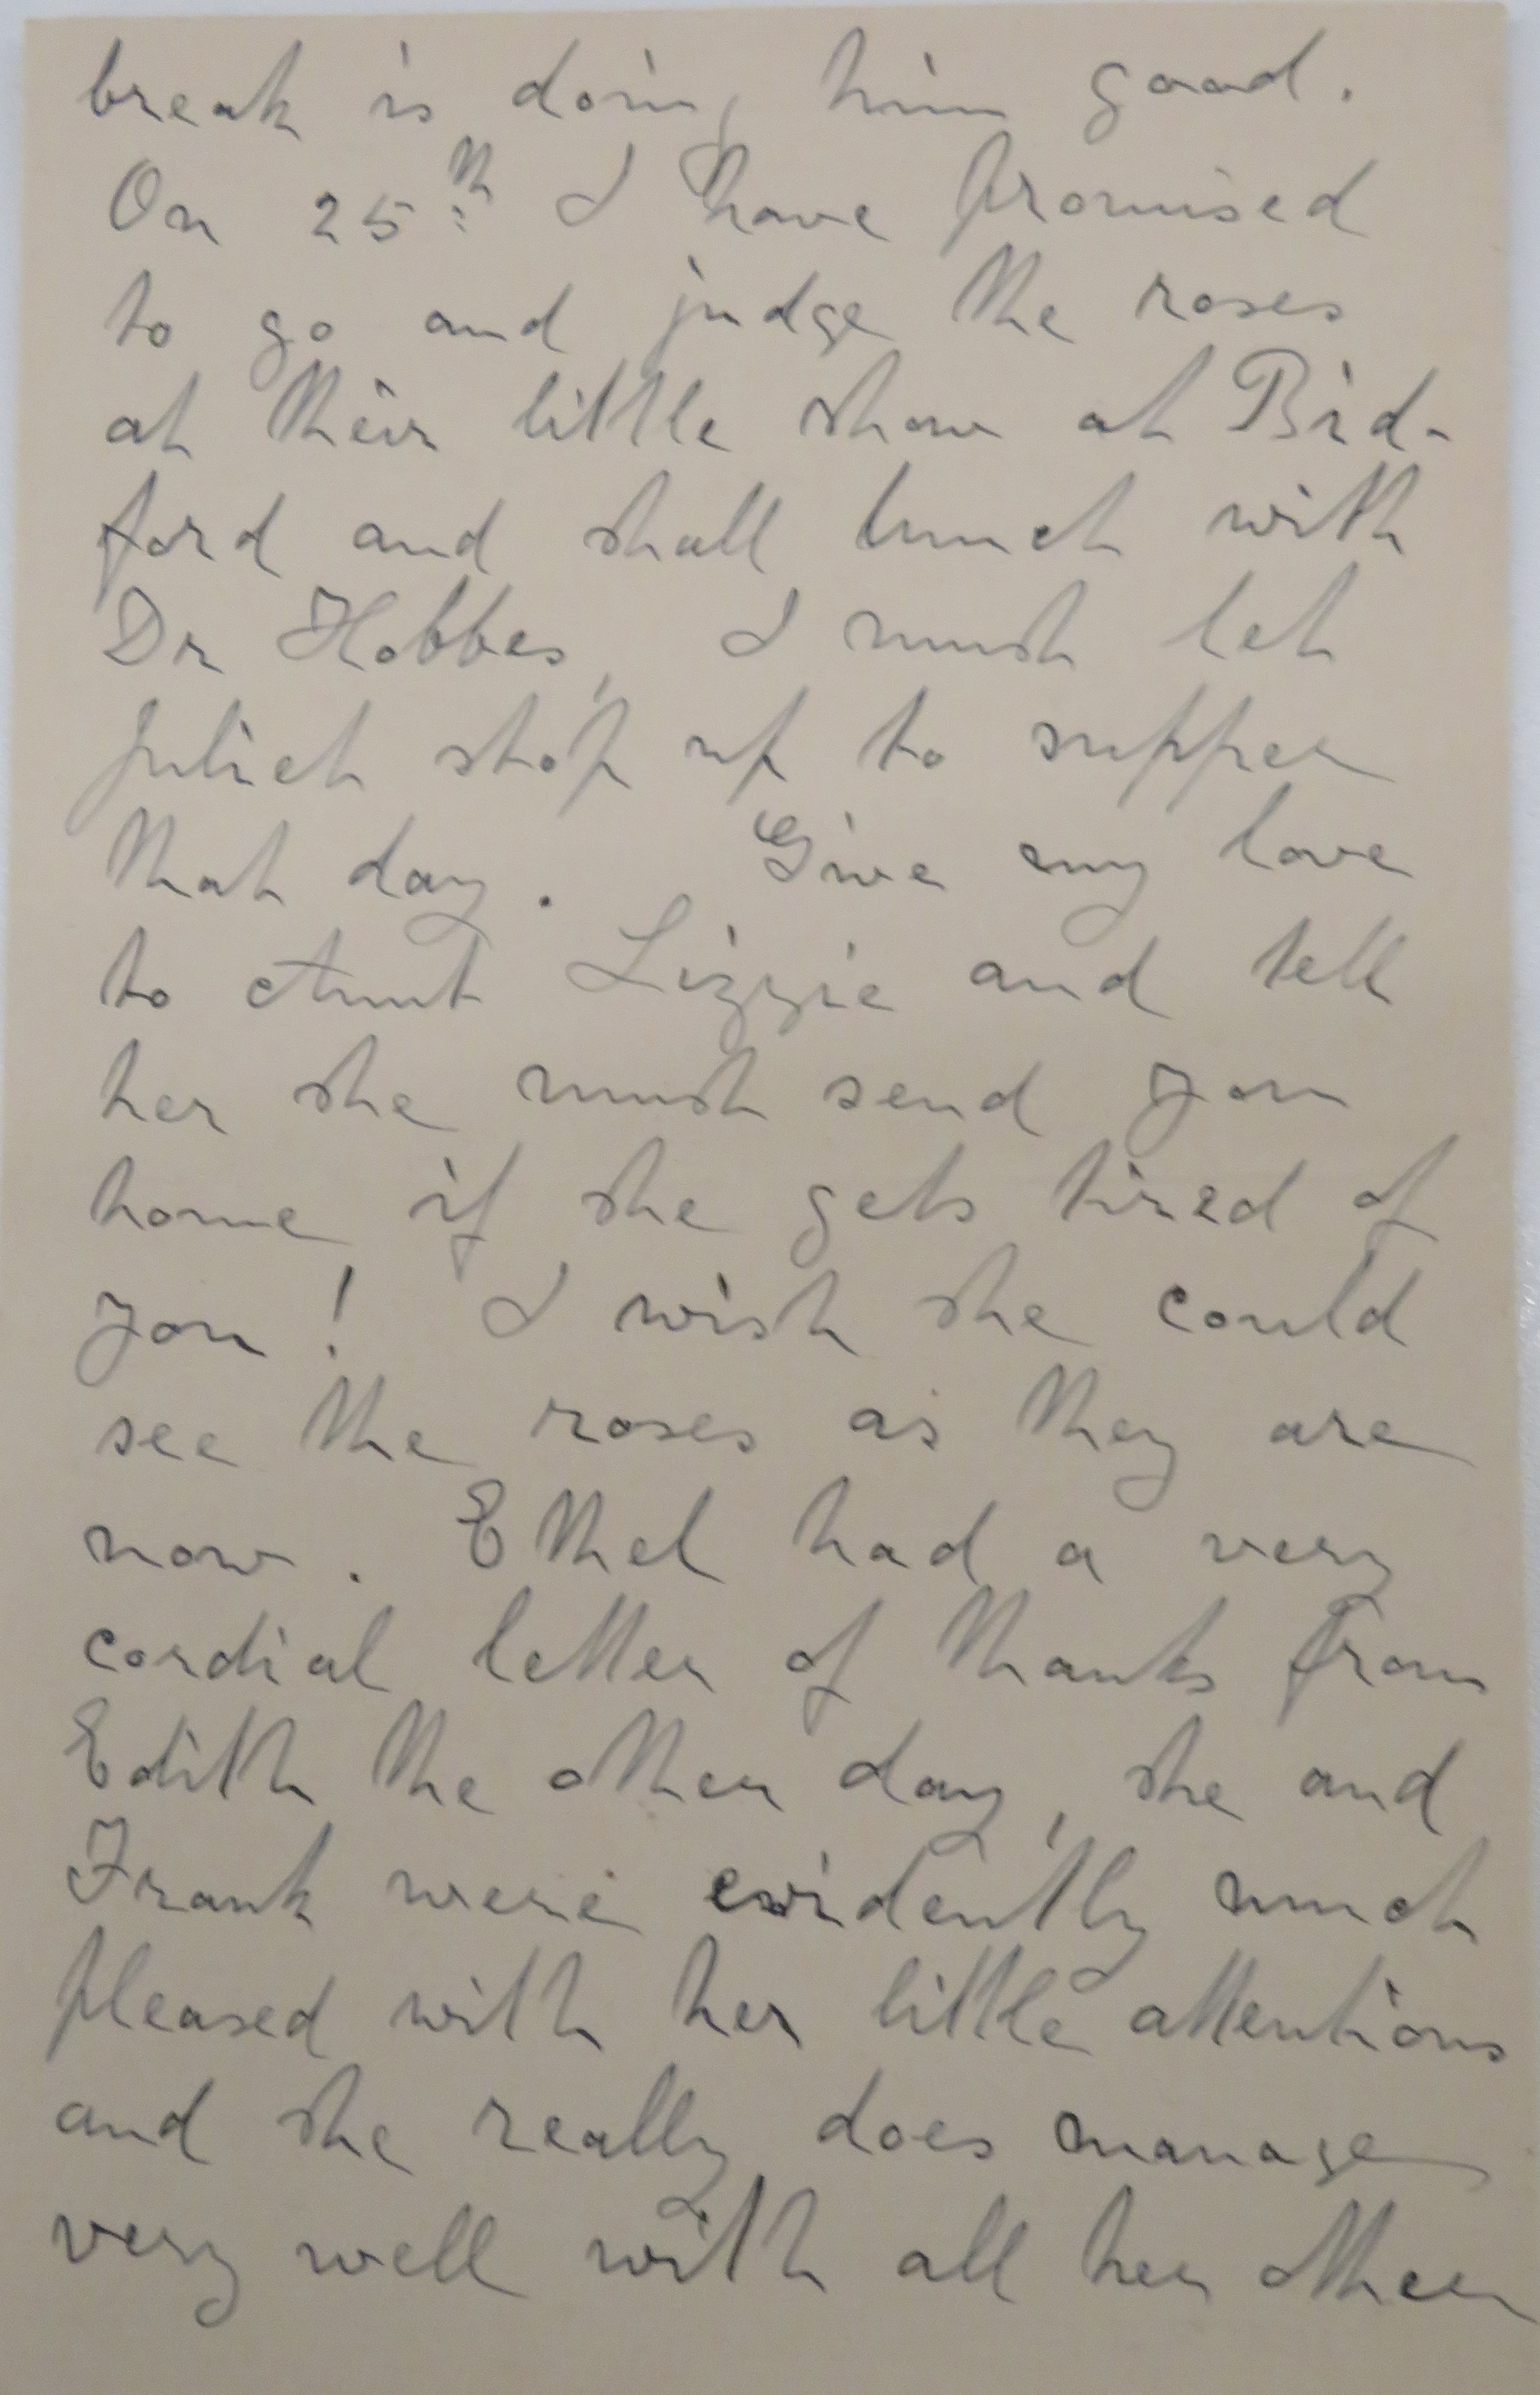 break is doing him good.
On 25th I have promised
to go and judge the roses
at their little show at Bid-
ford and shall lunch with
Dr Hobbes, I must let
Juliet stop up to supper
that day. Give my love
to Aunt Lizzie and tell
her she must send you
home if she gets tired of
you! I wish she could
see the roses as they are
now. Ethel had a very
cordial letter of thanks from
Edith the other day, she and
Frank were evidently much
pleased with her little attentions
and she really does manage
very well with all her other